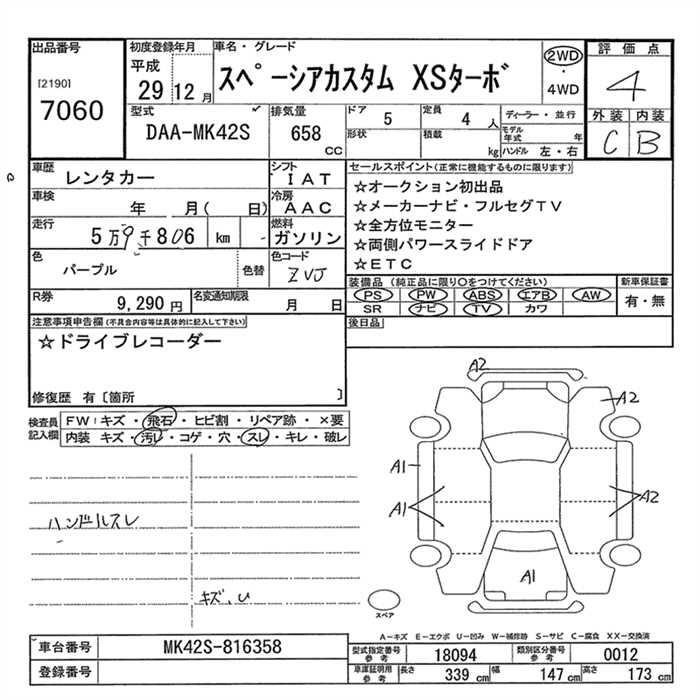 出品番号
[2190]
7060
初度登録年月
平成
29 12 月
車名・グレード
スペーシアカスタム XSターボ
2WD
・
4WD
評価点
4
外装 内装
C B
型式
DAA-MK42S
排気量
658
CC
ドア 5
形状
定員 4 人
積載 kg
ディーラー・並行
モデル年式 年
ハンドル 左・右
車歴 レンタカー
シフト
IAT
車検 年 月( 日)
冷房
AAC
走行 5万9千806 km
燃料
ガソリン
色 パープル 色替
色コード
ZVJ
R券 9,290 円
名変通知期限 月 日
セールスポイント(正常に機能するものに限ります)
☆オークション初出品
☆メーカーナビ・フルセグTV
☆全方位モニター
☆両側パワースライドドア
☆ETC
装備品 (純正品に限り○をつけてください)
PS PW ABS エアB AW
SR ナビ TV カワ
新車保証書
有・無
後日品
注意事項申告欄(不具合内容等は具体的に記入して下さい)
☆ドライブレコーダー
修復歴 有〔箇所 〕
検査員記入欄
FW:キズ・飛石・ヒビ割・リペア跡・×要
内装 キズ・汚レ・コゲ・穴・スレ・キレ・破レ
ハンドルスレ
キズ、U
A2
A2
A1
A1
A2
A1
スペア
A-キズ E-エクボ U-凹み W-補修跡 S-サビ C-腐食 XX-交換済
車台番号 MK42S-816358
登録番号
型式指定番号参考 18094
類別区分番号参考 0012
車庫証明用参考 長さ 339 cm 幅 147 cm 高さ 173 cm